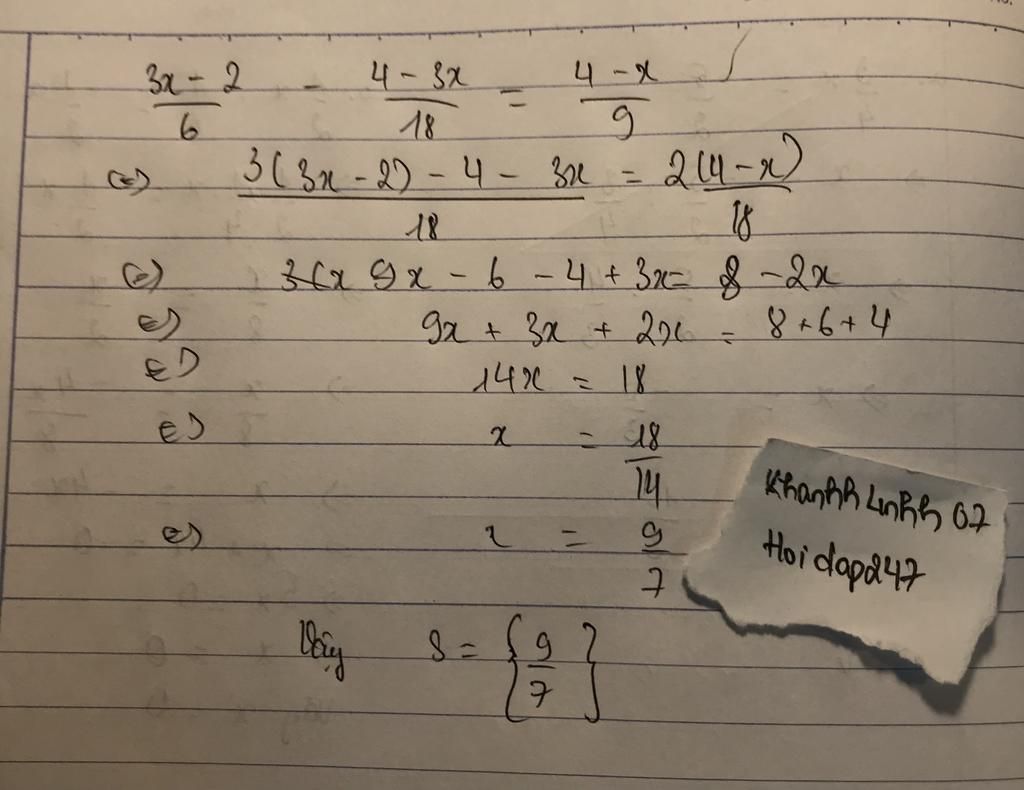 3x - 2 / 6 - 4 - 3x / 18 = 4 - x / 9
<=> 3(3x - 2) - 4 - 3x / 18 = 2(4 - x) / 18
<=> 9x - 6 - 4 + 3x = 8 - 2x
<=> 9x + 3x + 2x = 8 + 6 + 4
<=> 14x = 18
<=> x = 18 / 14
<=> x = 9 / 7
Vậy S = { 9 / 7 }
Khanhh Linhh 07
Hoidap247